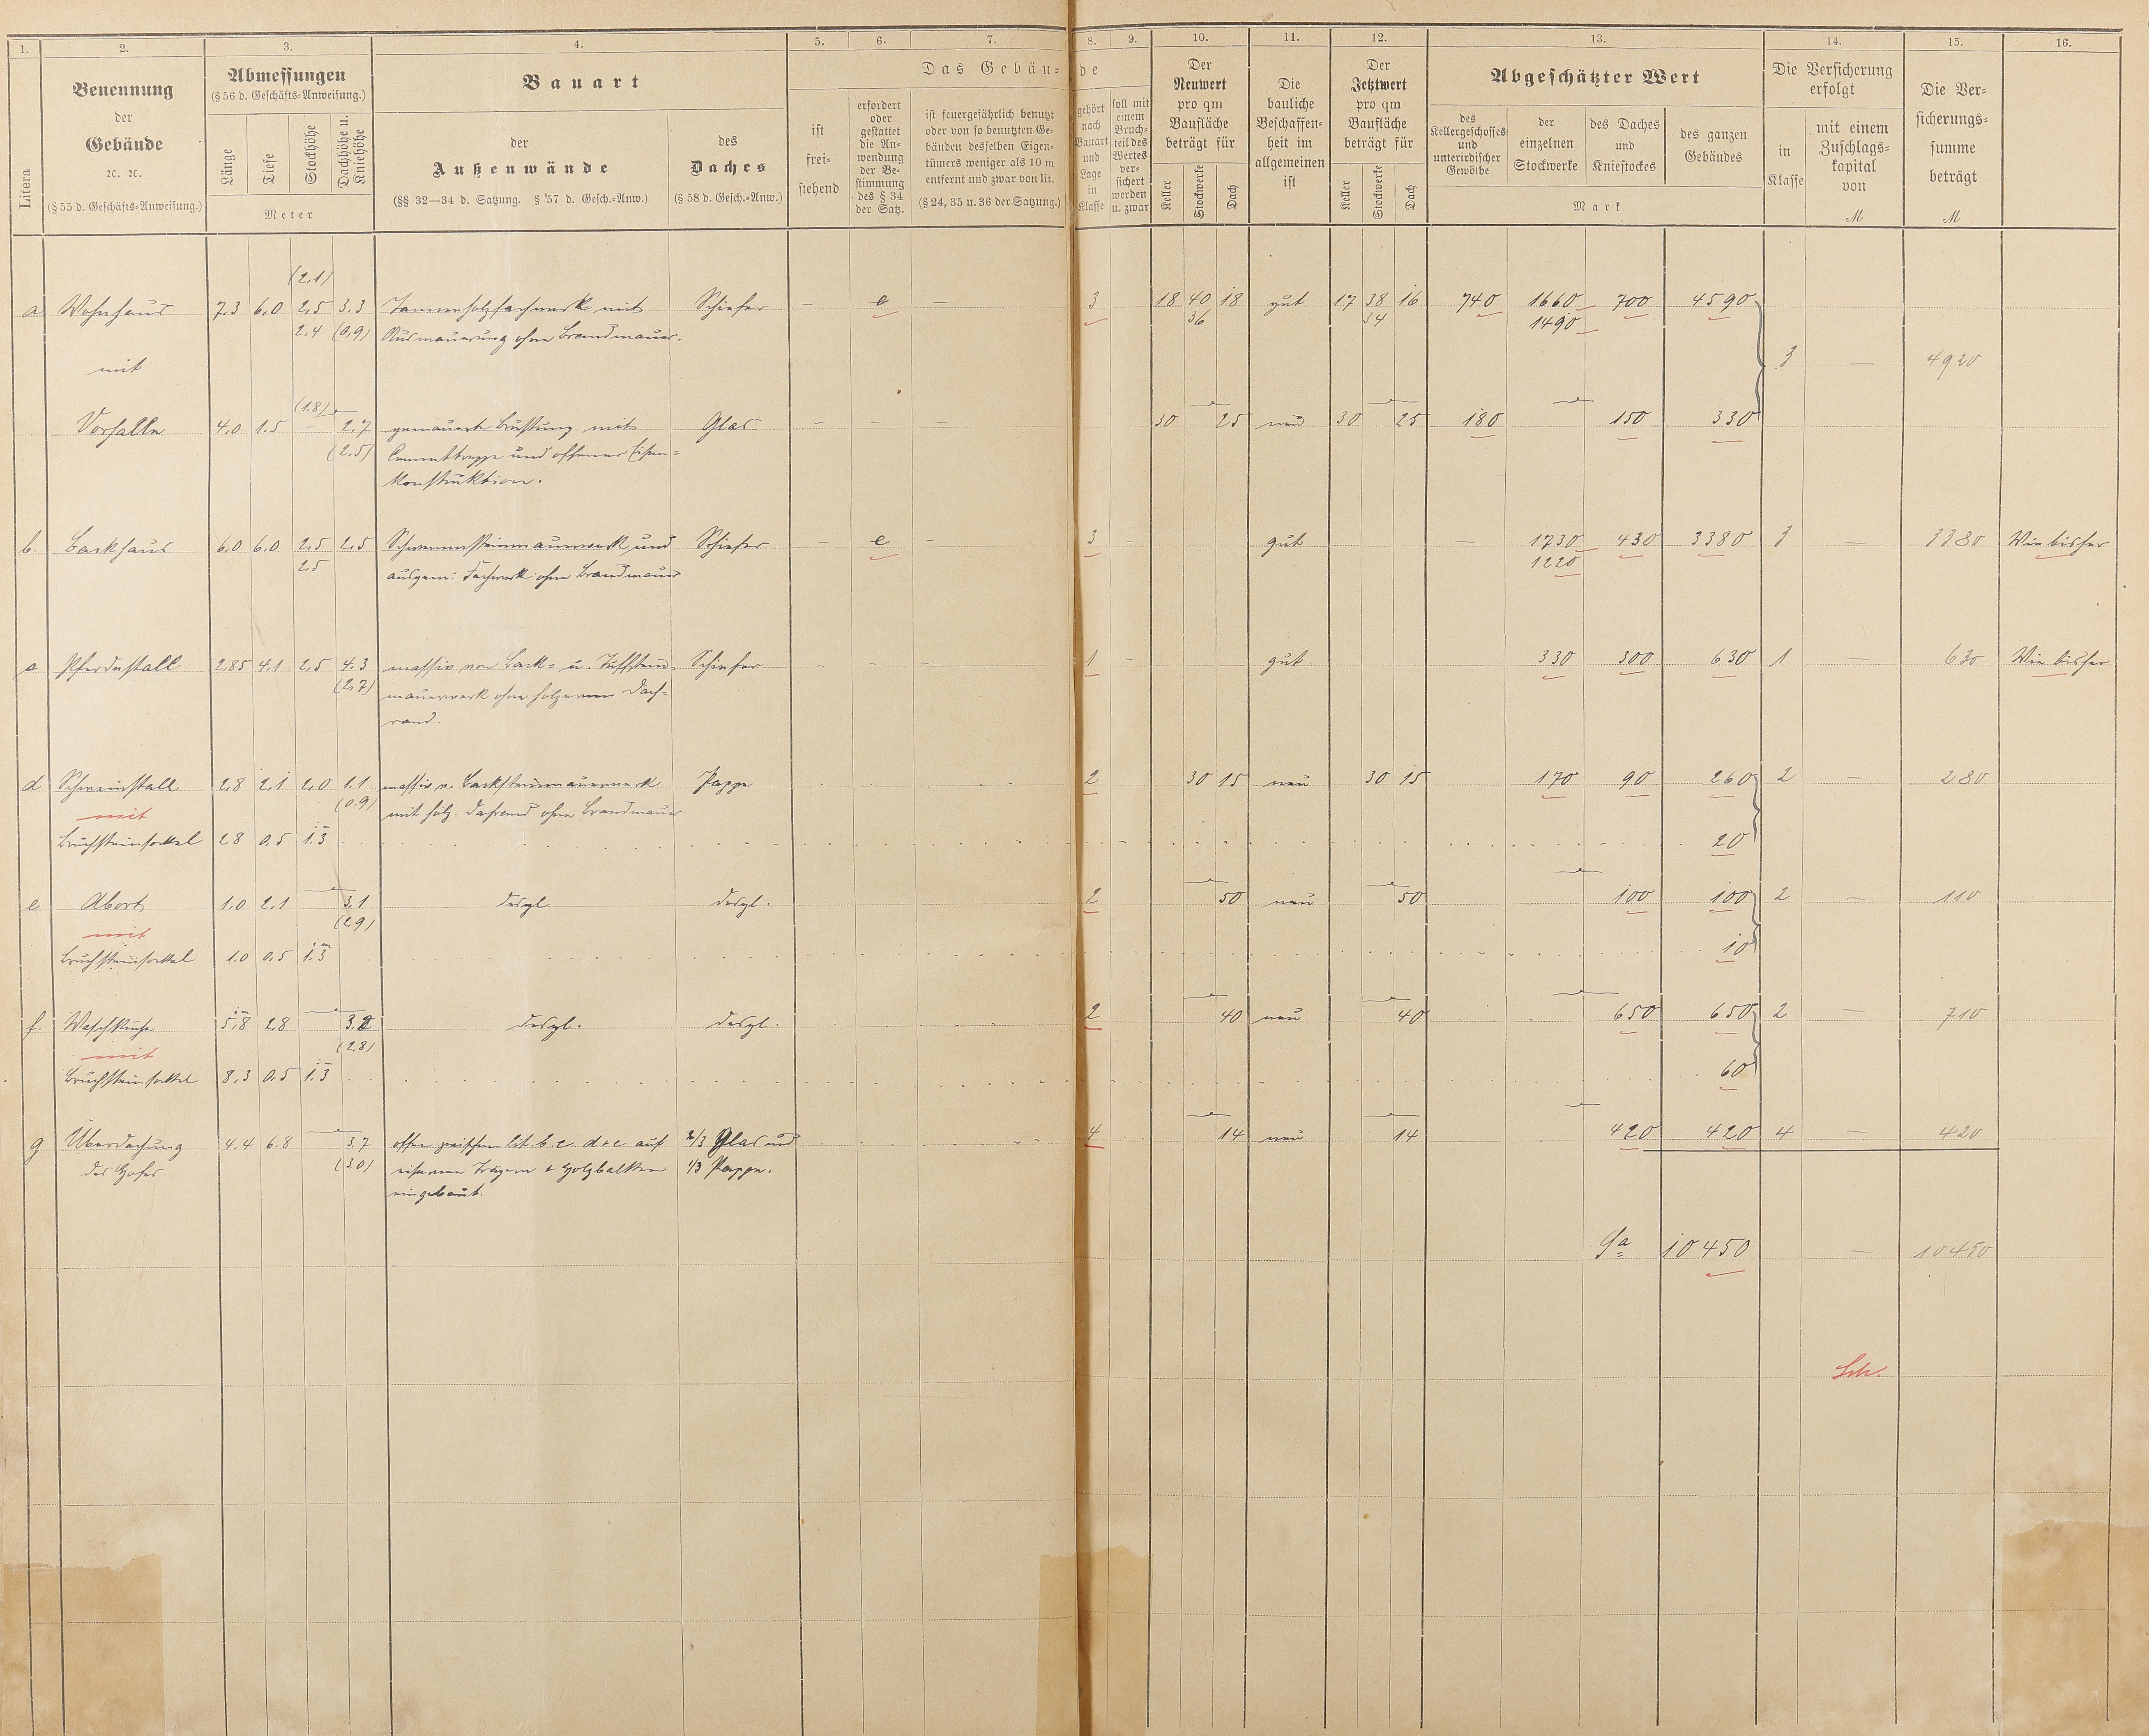 1. 2. 3. 4. 5. 6. 7. 8. 9. 10. 11. 12. 13. 14. 15. 16.
Litera
Benennung
der
Gebäude
ꝛc. ꝛc.
(§ 55 d. Geschäfts-Anweisung.)
Abmessungen
(§ 56 d. Geschäfts-Anweisung.)
Länge
Tiefe
Stockhöhe
Dachhöhe u. Kniehöhe
Meter
Bauart
der
Außenwände
(§§ 32—34 d. Satzung. § 57 d. Gesch.-Anw.)
des
Daches
(§ 58 d. Gesch.-Anw.)
Das Gebäu-
de
ist
frei-
stehend
erfordert
oder
gestattet
die An-
wendung
der Be-
stimmung
des § 34
der Satz.
ist feuergefährlich benutzt
oder von so benutzten Ge-
bäuden desselben Eigen-
tümers weniger als 10 m
entfernt und zwar von lit.
(§ 24, 35 u. 36 der Satzung.)
gehört
nach
Bauart
und
Lage
in
Klasse
soll mit
einem
Bruch-
teil des
Wertes
ver-
sichert
werden
u. zwar
Der
Neuwert
pro qm
Baufläche
beträgt für
Keller
Stockwerke
Dach
Die
bauliche
Beschaffen-
heit im
allgemeinen
ist
Der
Jetztwert
pro qm
Baufläche
beträgt für
Keller
Stockwerke
Dach
Abgeschätzter Wert
des
Kellergeschosses
und
unterirdischer
Gewölbe
der
einzelnen
Stockwerke
des Daches
und
Kniestockes
des ganzen
Gebäudes
Mark
Die Versicherung
erfolgt
in
Klasse
mit einem
Zuschlags-
kapital
von
M
Die Ver-
sicherungs-
summe
beträgt
M
(2,1)
a Wohnhaus 7,3 6,0 2,5 3,3 Tannenholzfachwerk mit Schiefer — e — 3 18 40 18 gut 17 38 16 740 1660 700 4590
2,4 (0,9) Ausmauerung ohne Brandmauer. 36 34 1490
mit 3 — 4920
(1.8)
Vorhalle 4,0 1.5 — 2,7 gemauerte Brüstung mit Glas — — — 30 25 neu 30 25 180 150 330
(2,5) Cementtreppe und offener Eisen-
konstruktion.
b. Backhaus 6,0 6,0 2,5 2,5 Schwemmsteinmauerwerk und Schiefer — e — 3 — gut — 1730 430 3380 3 — 3380 Wie bisher
2,5 ausgem: Fachwerk ohne Brandmauer 1220
c Pferdestall 2,85 4,1 2,5 4,3 massiv von Back- u. Tuffstein- Schiefer — — — 1 — gut 330 300 630 1 — 630 Wie bisher
(2,7) mauerwerk ohne hölzernen Dach-
rand.
d Schweinstall 2,8 2,1 2,0 1.1 massiv v. Backsteinmauerwerk Pappe 2 30 15 neu 30 15 170 90 260 2 — 280
mit (0.9) mit hölz. Dachrand ohne Brandmauer
Bruchsteinsockel 2.8 0,5 1.3 20
e Abort 1.0 2.1 3,1 desgl desgl. 2 50 neu 50 100 100 2 — 110
mit (2,9)
Bruchsteinsockel 1.0 0.5 1.3 10
f. Waschküche 5,8 2,8 3.2 desgl. desgl. 2 40 neu 40 650 650 2 — 710
mit (2,8)
Bruchsteinsockel 8,3 0,5 1.3 60
g Überdachung 4.4 6.8 3,7 offen zwischen lit. b. c. d + e auf 2/3 Glas und 4 14 neu 14 420 420 4 — 420
des Hofes. (3,0) eisernen Trägern + Holzbalken 1/3 Pappe.
eingebaut.
Sa 10450 — 10450
Sch.